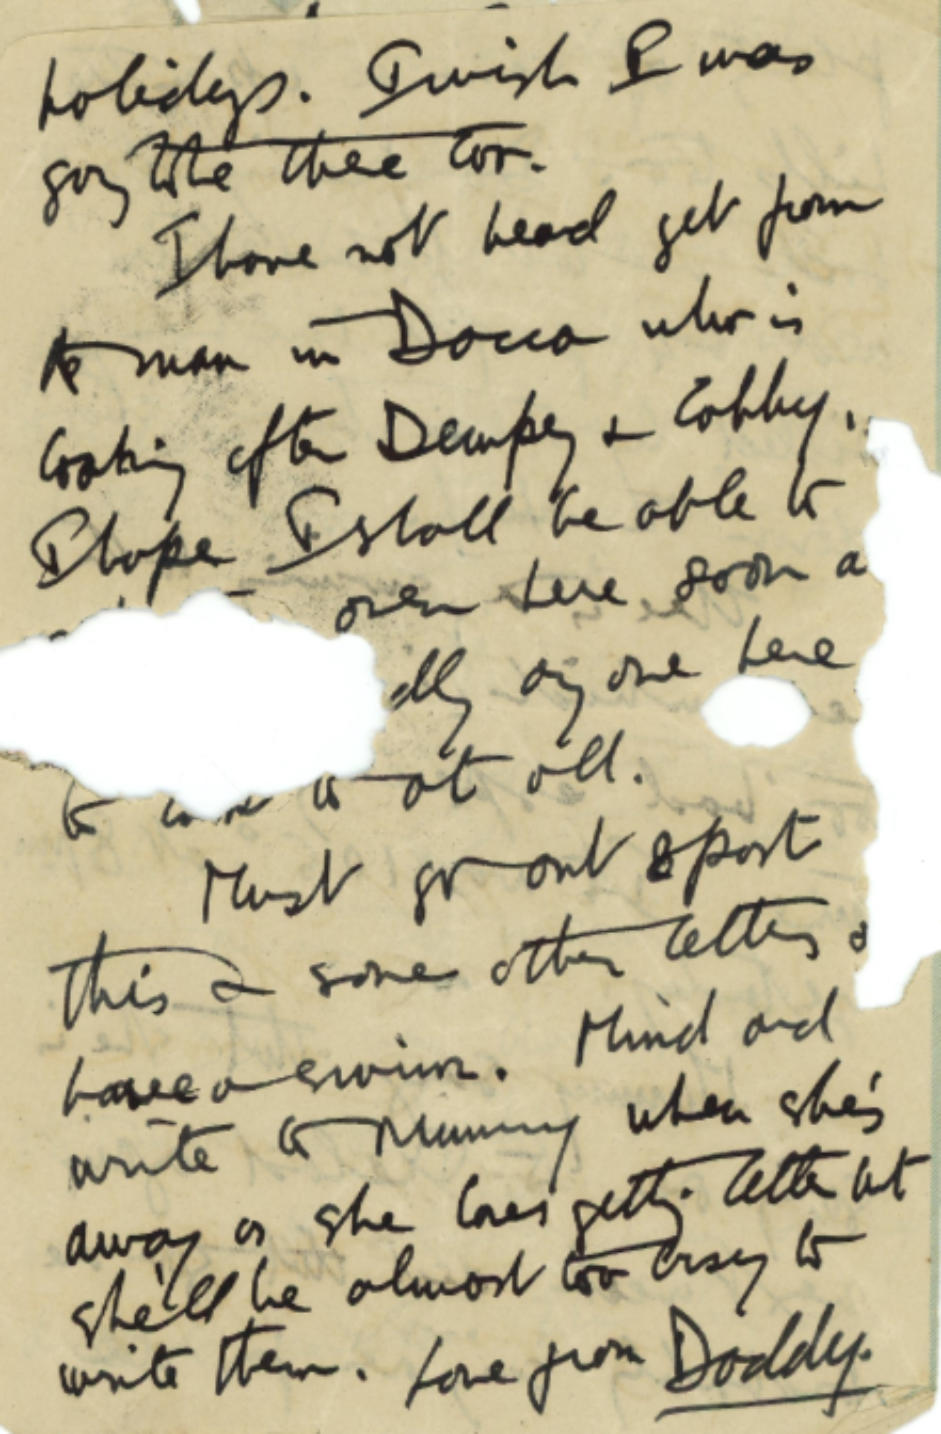 holidays. I wish I was
going to be there too.
I have not heard yet from
the man in Dacca who is
looking after Dempsey & Cobby.
I hope I shall be able to
over here soon a
anyone here
to at all.
Must go out & post
this & some other letters &
have a swim. Mind and
write to Mummy when she's
away as she loves getting letters but
she'll be almost too busy to
write them. Love from Daddy.